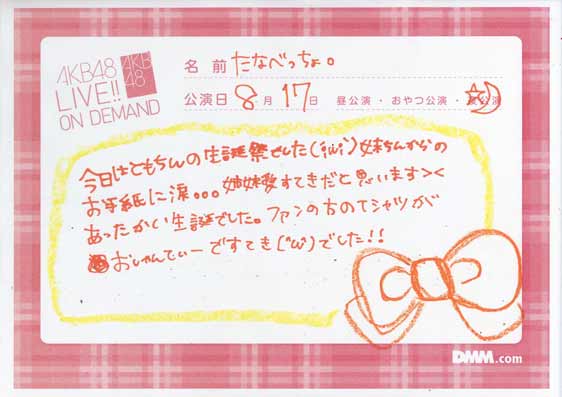 AKB48
LIVE!!
ON DEMAND
AKB
48
名 前 たなべっちょ。
公演日 8月 17日 昼公演・おやつ公演・夜公演
今日はともちんの生誕祭でした(;ω;)妹ちんからの
お手紙に涙。。。姉妹愛すてきだと思います><
あったかい生誕でした。ファンの方のTシャツが
おしゃんてぃーですてき(*'ω')でした!!
DMM.com